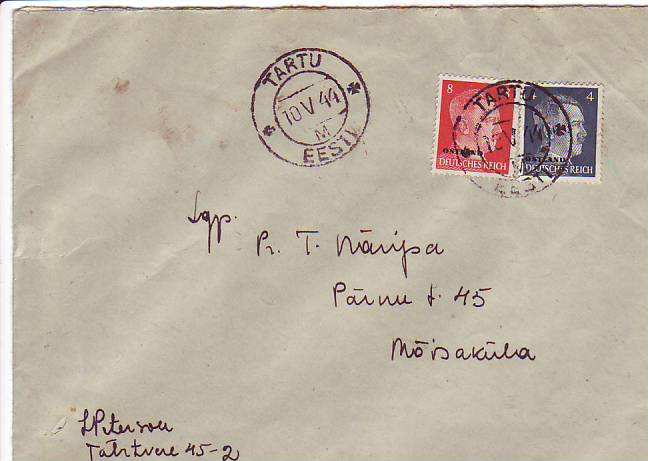 TARTU
10 V 44
M
EESTI
8
OSTLAND
DEUTSCHES REICH
4
OSTLAND
DEUTSCHES REICH
TARTU
EESTI
Lgp.
Pr. T. Näripa
Pärnu t. 45
Mõisaküla
LPeterson
Tähtvere 45-2